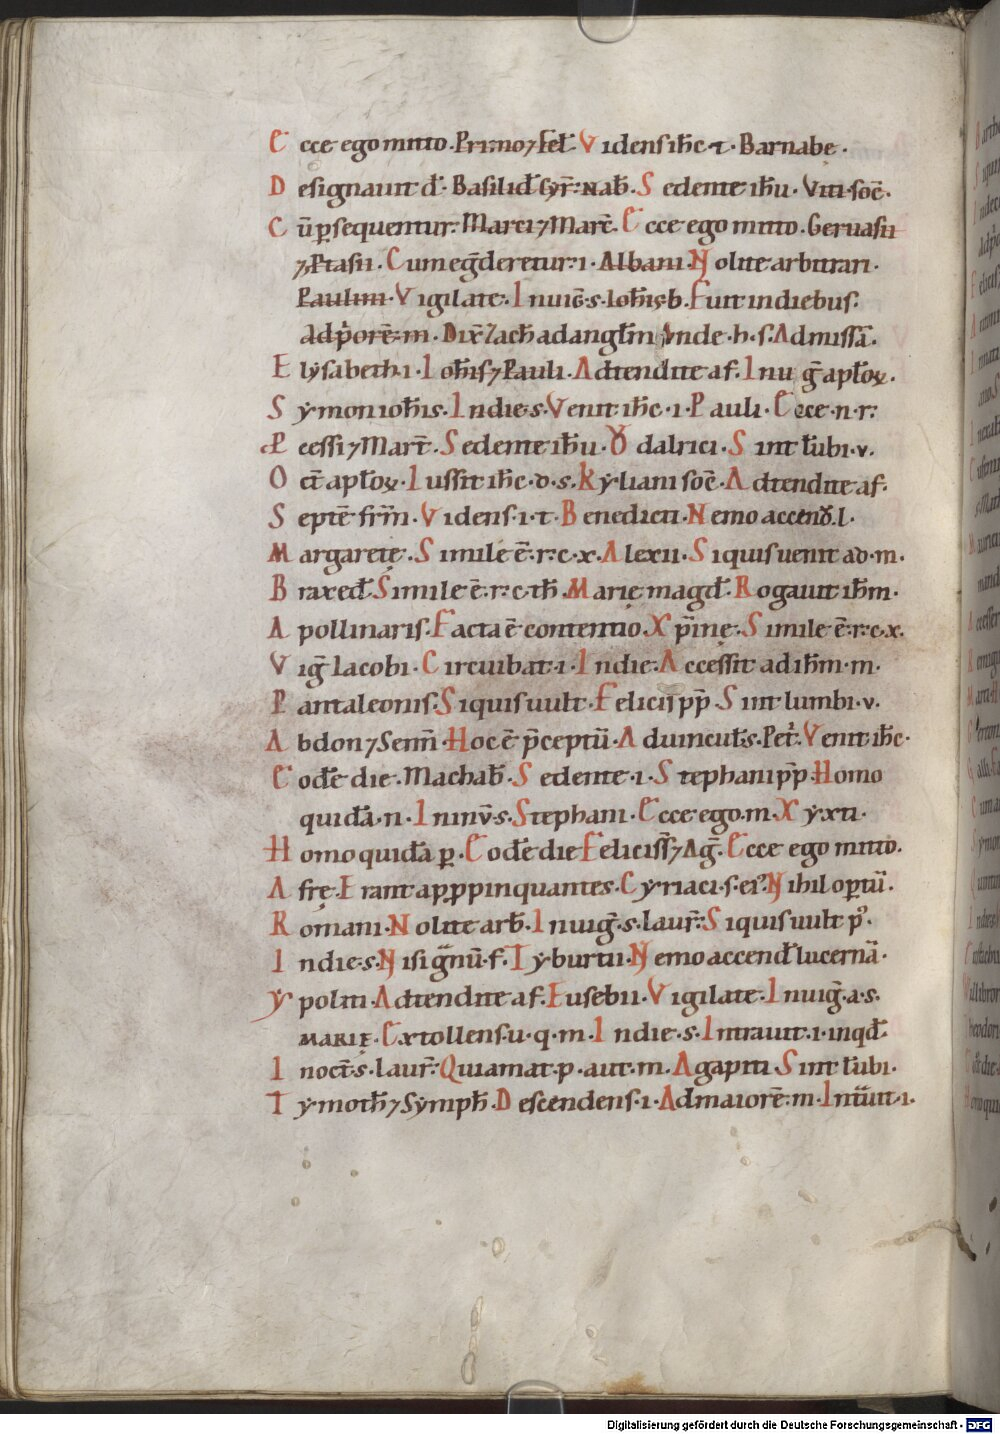 Ecce ego mitto. Primo ⁊ fel̄. Videns ih̄c t. Barnabę.
Designauit d̄. Basilid̄ Cyr̄. Nab̄. Sedente ih̄u. Viti soc̄.
Cū ꝑsequentur. Marci ⁊ Marc̄. Ecce ego mitto. Geruasii
⁊ Ptasii. Cum eḡderetur. i. Albani. Nolite arbitrari.
Paulini. Vigilate. Inuic̄. s. Ioh̄is b. Fuit in diebus.
Ad p̄orē. m. Dix̄ Zach ad angl̄m Vnde. h. s. Ad missā.
Elẏsabeth. i. Ioh̄is ⁊ Pauli. Adtendite a f. In uḡ apl̄oꝝ.
Sẏmon ioh̄is. In die. s. Venit ih̄c. i. Pauli. Ecce. n. r.
Pcessi ⁊ Mart̄. Sedente ih̄u. Vodalrici. Sint l̄ubi. v.
Oct̄ apl̄oꝝ. Iussit ih̄c. d. s. Kẏliani soc̄. Adtendite a f.
Septē frm̄. Videns. i. t. Benedicti. Nemo accend. l.
Margaretę. Simile ē. r. c. x. Alexii. Si quis uenit ad. m.
Braxed̄. Simile ē. r. c. th̄. Marię magd̄. Rogauit ih̄m.
Apollinaris. Facta ē contentio. Xp̄inę. Simile ē. r. c. x.
Viḡ Iacobi. Circuibat. i. In die. Accessit ad ih̄m. m.
Pantaleonis. Si quis uult. Felicis p̄p̄. Sint lumbi. v.
Abdon ⁊ Senn̄. Hoc ē p̄ceptū. Ad uincul̄s. Pet̄. Venit ih̄c.
Eod̄e die. Machab̄. Sedente. i. Stephani p̄p̄ Homo
quidā. n. In inv̄. s. Stephani. Ecce ego. m. Xẏxti.
Homo quidā p̱. Eod̄e die Feliciss̄ ⁊ Aḡ. Ecce ego mitto.
Afrę. Erant appropinquantes. Cyriaci. s. ei⁹. Nihil opertū.
Romani. Nolite arb̄. In uiḡ. s. laur̄. Si quis uult p⁹.
In die. s. Nisi gnū. f. Tẏburtii. Nemo accend̄ lucernā.
ẏpoliti. Adtendite a f. Eusebii. Vigilate. In uiḡ. a. s.
MARIĘ. Extollens. u. q. m. In die. s. Intrauit. i. in qd̄.
In oct̄. s. laur̄. Qui amat. p. aut. m. Agapiti. Sint l̄ubi.
Tẏmoth̄ ⁊ Sẏmph̄. Descendens. i. Ad maiorē. m. Intūit. i.
Digitalisierung gefördert durch die Deutsche Forschungsgemeinschaft - DFG